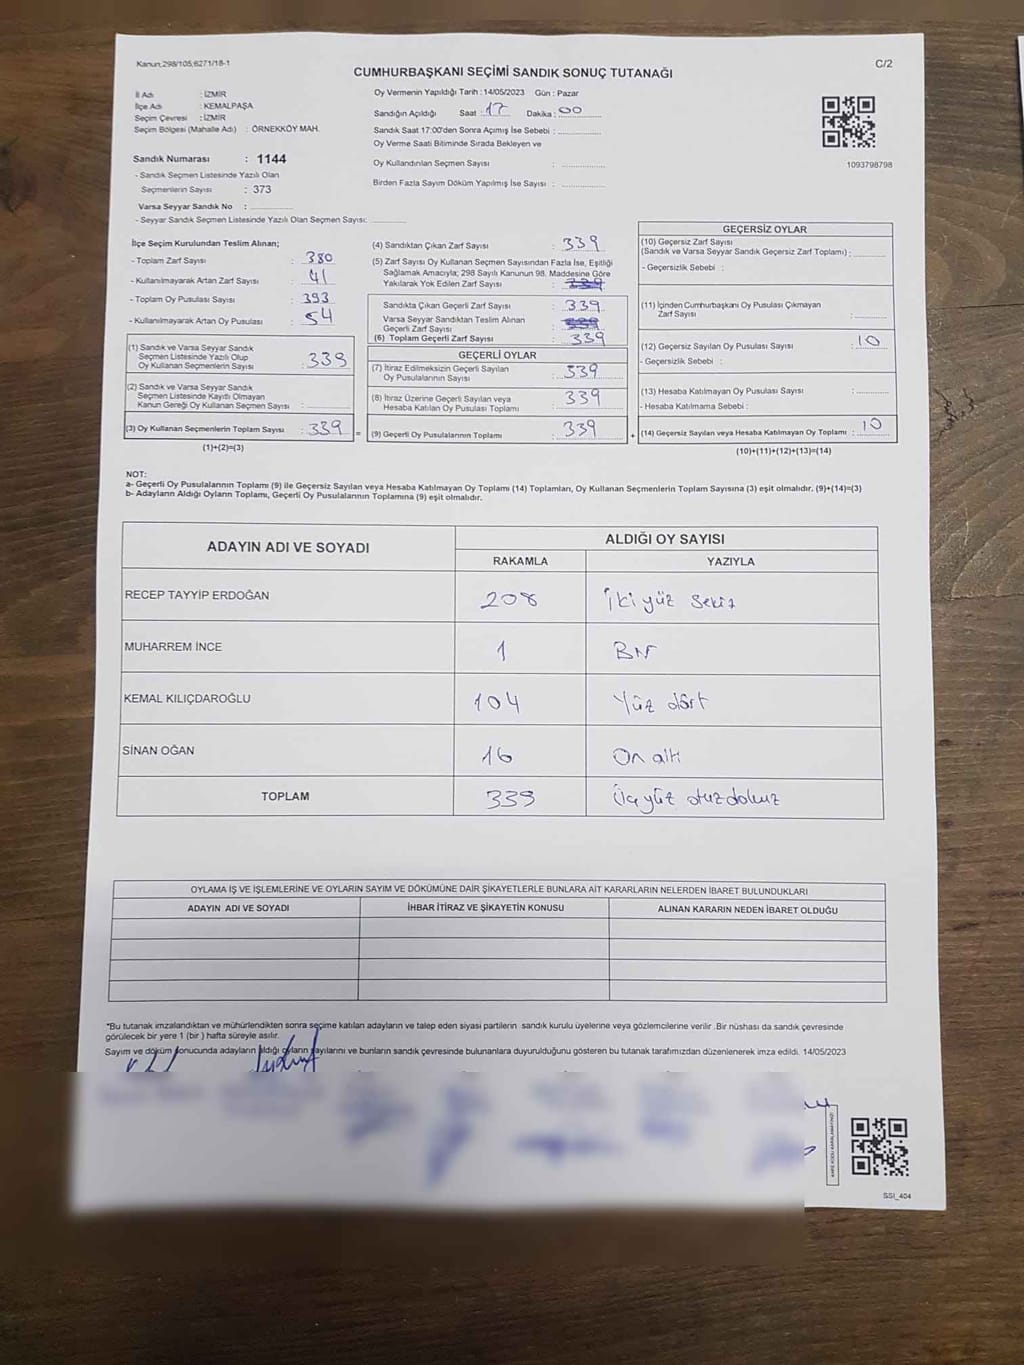 Kanun;298/105;6271/18-1
C/2
CUMHURBAŞKANI SEÇİMİ SANDIK SONUÇ TUTANAĞI
İl Adı : İZMİR
İlçe Adı : KEMALPAŞA
Seçim Çevresi : İZMİR
Seçim Bölgesi (Mahalle Adı) : ÖRNEKKÖY MAH.
Sandık Numarası : 1144
- Sandık Seçmen Listesinde Yazılı Olan
Seçmenlerin Sayısı : 373
Varsa Seyyar Sandık No :
- Seyyar Sandık Seçmen Listesinde Yazılı Olan Seçmen Sayısı:
Oy Vermenin Yapıldığı Tarih : 14/05/2023 Gün : Pazar
Sandığın Açıldığı Saat : 17 Dakika : 00
Sandık Saat 17:00'den Sonra Açılmış İse Sebebi :
Oy Verme Saati Bitiminde Sırada Bekleyen ve
Oy Kullandırılan Seçmen Sayısı :
Birden Fazla Sayım Döküm Yapılmış İse Sayısı :
1093798798
İlçe Seçim Kurulundan Teslim Alınan;
- Toplam Zarf Sayısı : 380
- Kullanılmayarak Artan Zarf Sayısı : 41
- Toplam Oy Pusulası Sayısı : 393
- Kullanılmayarak Artan Oy Pusulası : 54
(1) Sandık ve Varsa Seyyar Sandık
Seçmen Listesinde Yazılı Olup
Oy Kullanan Seçmenlerin Sayısı : 339
(2) Sandık ve Varsa Seyyar Sandık
Seçmen Listesinde Kayıtlı Olmayan
Kanun Gereği Oy Kullanan Seçmen Sayısı :
(3) Oy Kullanan Seçmenlerin Toplam Sayısı : 339 =
(1)+(2)=(3)
(4) Sandıktan Çıkan Zarf Sayısı : 339
(5) Zarf Sayısı Oy Kullanan Seçmen Sayısından Fazla İse, Eşitliği
Sağlamak Amacıyla; 298 Sayılı Kanunun 98. Maddesine Göre
Yakılarak Yok Edilen Zarf Sayısı : 339
Sandıkta Çıkan Geçerli Zarf Sayısı : 339
Varsa Seyyar Sandıktan Teslim Alınan
Geçerli Zarf Sayısı :
(6) Toplam Geçerli Zarf Sayısı : 339
GEÇERLİ OYLAR
(7) İtiraz Edilmeksizin Geçerli Sayılan
Oy Pusulalarının Sayısı : 339
(8) İtiraz Üzerine Geçerli Sayılan veya
Hesaba Katılan Oy Pusulası Toplamı : 339
(9) Geçerli Oy Pusulalarının Toplamı : 339 +
GEÇERSİZ OYLAR
(10) Geçersiz Zarf Sayısı
(Sandık ve Varsa Seyyar Sandık Geçersiz Zarf Toplamı) :
- Geçersizlik Sebebi :
(11) İçinden Cumhurbaşkanı Oy Pusulası Çıkmayan
Zarf Sayısı :
(12) Geçersiz Sayılan Oy Pusulası Sayısı : 10
- Geçersizlik Sebebi :
(13) Hesaba Katılmayan Oy Pusulası Sayısı :
- Hesaba Katılmama Sebebi :
(14) Geçersiz Sayılan veya Hesaba Katılmayan Oy Toplamı : 10
(10)+(11)+(12)+(13)=(14)
NOT:
a- Geçerli Oy Pusulalarının Toplamı (9) ile Geçersiz Sayılan veya Hesaba Katılmayan Oy Toplamı (14) Toplamları, Oy Kullanan Seçmenlerin Toplam Sayısına (3) eşit olmalıdır. (9)+(14)=(3)
b- Adayların Aldığı Oyların Toplamı, Geçerli Oy Pusulalarının Toplamına (9) eşit olmalıdır.
ADAYIN ADI VE SOYADI ALDIĞI OY SAYISI
RAKAMLA YAZIYLA
RECEP TAYYİP ERDOĞAN 208 İki yüz sekiz
MUHARREM İNCE 1 Bir
KEMAL KILIÇDAROĞLU 104 Yüz dört
SİNAN OĞAN 16 On altı
TOPLAM 339 Üç yüz otuz dokuz
OYLAMA İŞ VE İŞLEMLERİNE VE OYLARIN SAYIM VE DÖKÜMÜNE DAİR ŞİKAYETLERLE BUNLARA AİT KARARLARIN NELERDEN İBARET BULUNDUKLARI
ADAYIN ADI VE SOYADI İHBAR İTİRAZ VE ŞİKAYETİN KONUSU ALINAN KARARIN NEDEN İBARET OLDUĞU
*Bu tutanak imzalandıktan ve mühürlendikten sonra seçime katılan adayların ve talep eden siyasi partilerin sandık kurulu üyelerine veya gözlemcilerine verilir .Bir nüshası da sandık çevresinde
görülecek bir yere 1 (bir ) hafta süreyle asılır.
Sayım ve döküm sonucunda adayların aldığı oyların sayılarını ve bunların sandık çevresinde bulunanlara duyurulduğunu gösteren bu tutanak tarafımızdan düzenlenerek imza edildi. 14/05/2023
SSI_404